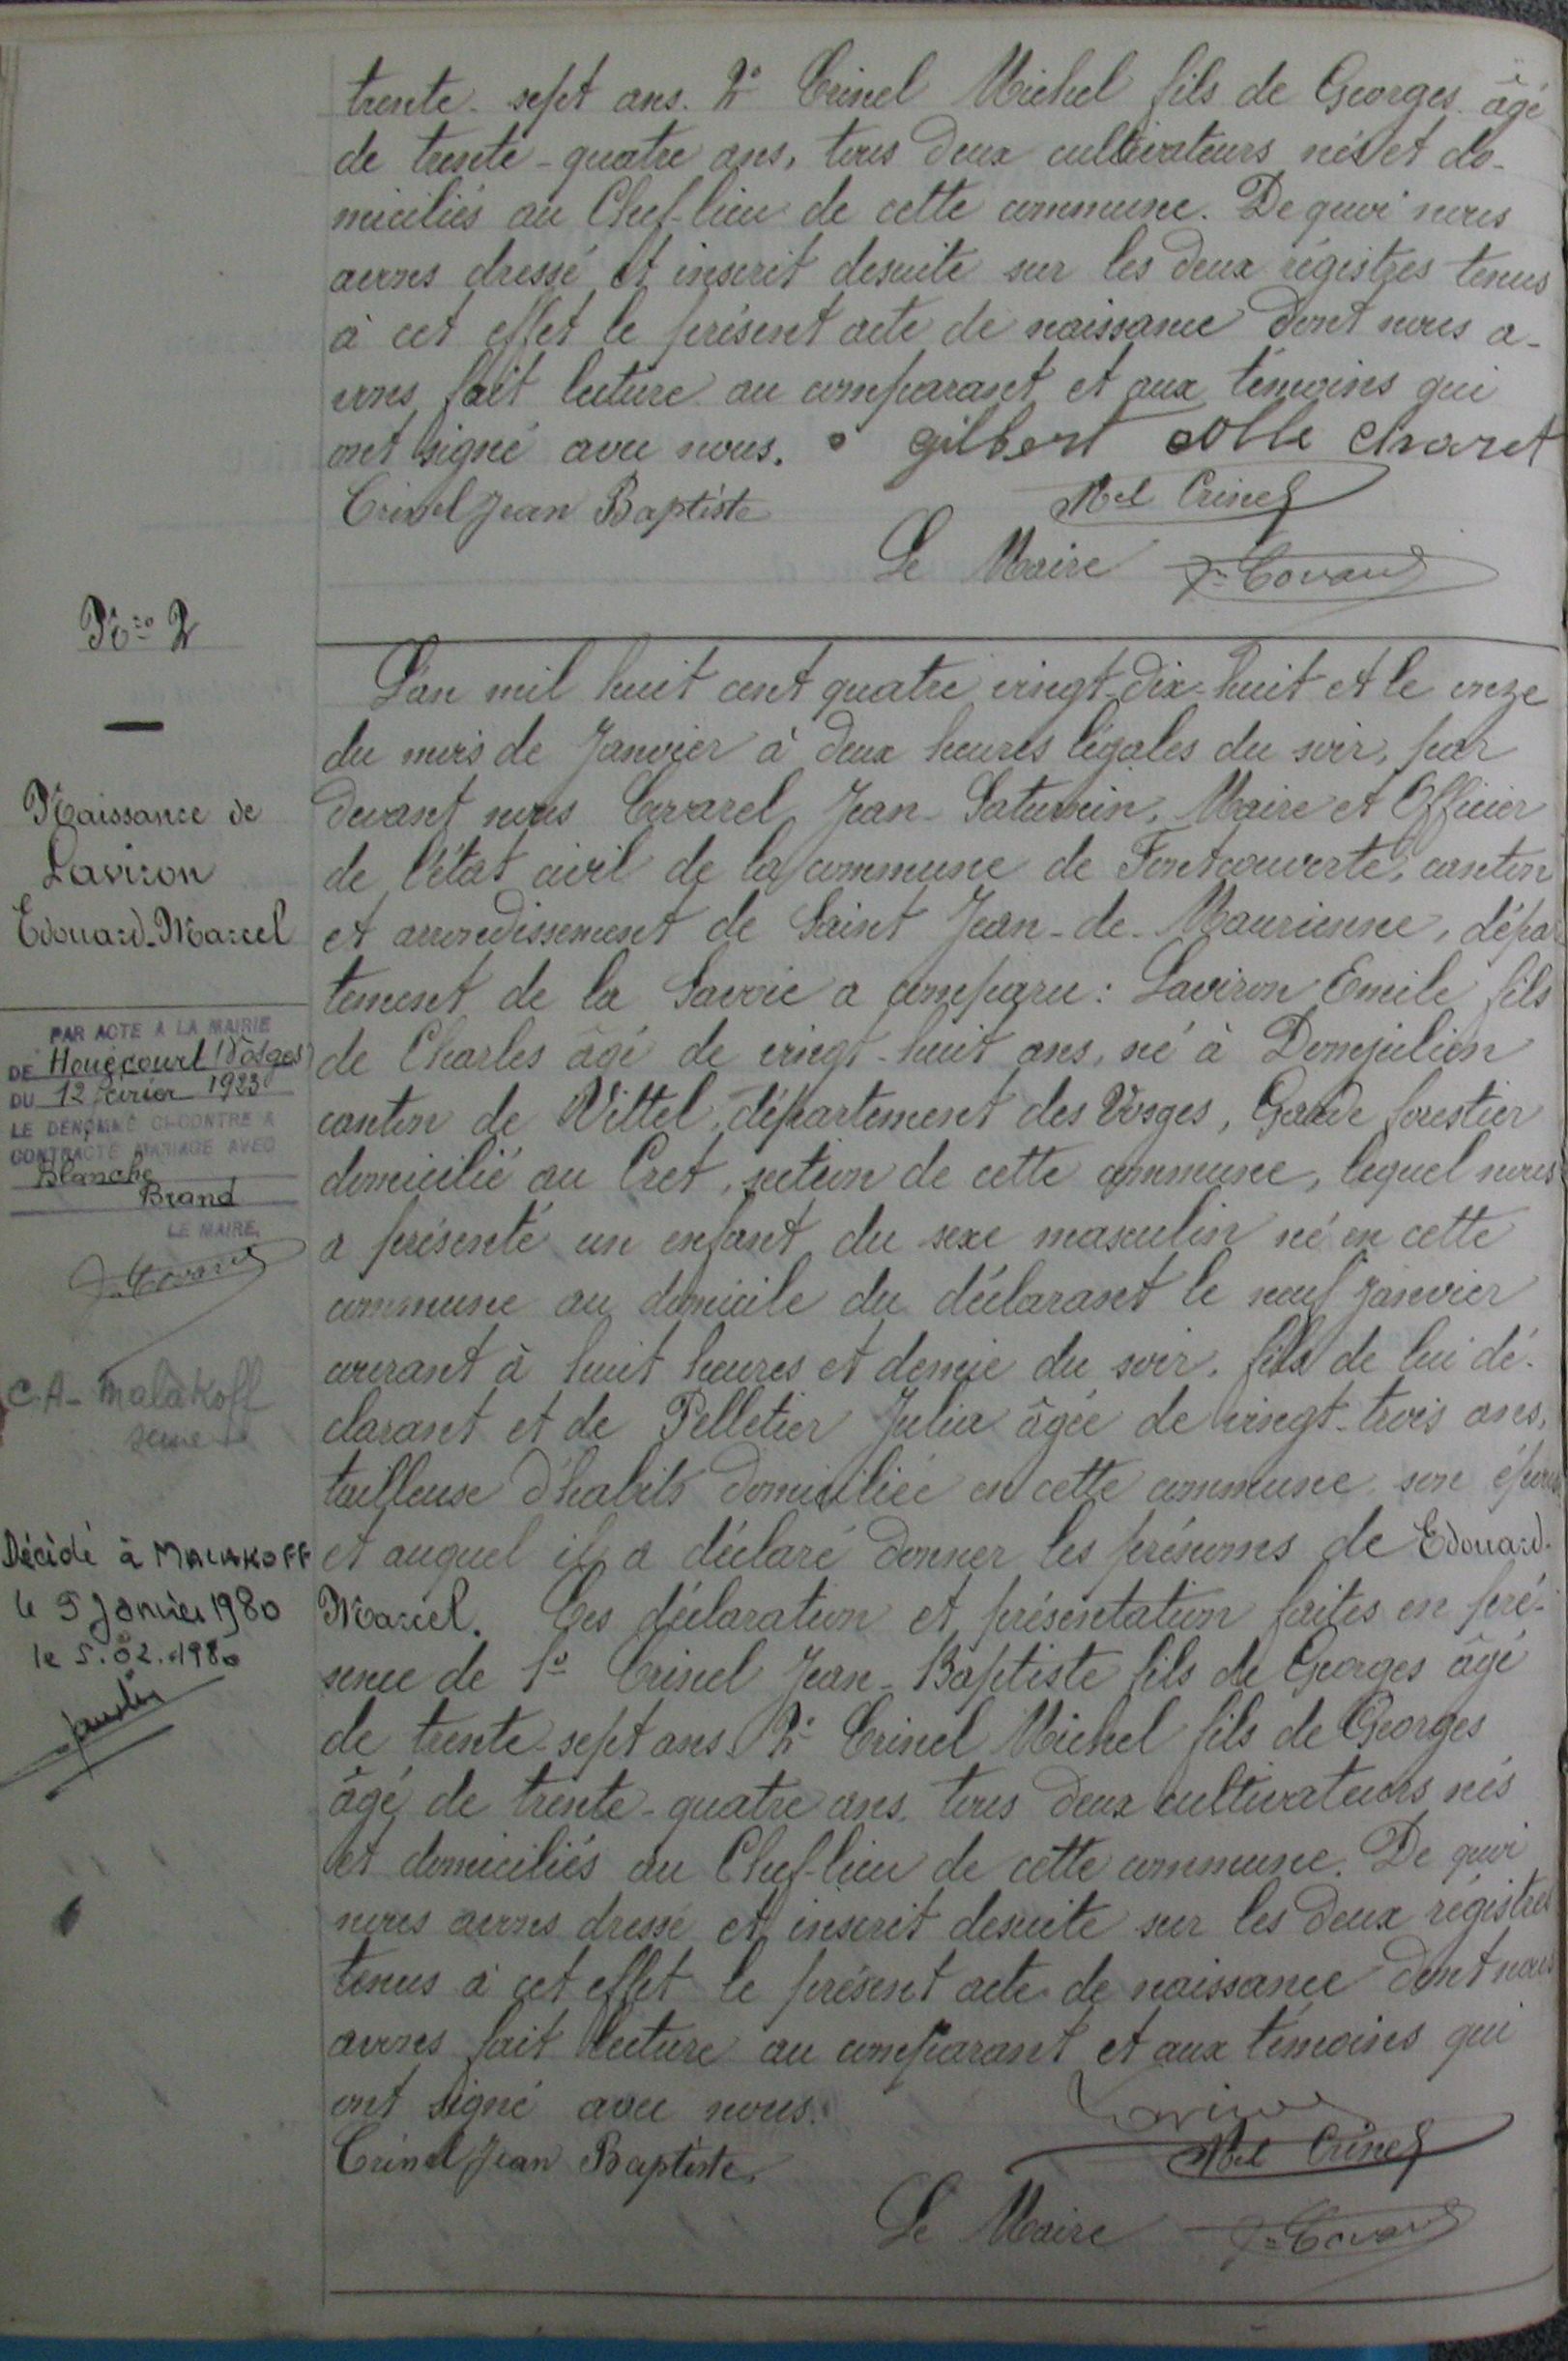 trente-sept ans. 2° Crinel Michel fils de Georges âgé
de trente-quatre ans, tous deux cultivateurs nés et do-
miciliés au Chef-lieu de cette commune. De quoi nous
avons dressé et inscrit desuite sur les deux régistres tenus
à cet effet le présent acte de naissance dont nous a-
vons fait lecture au comparant et aux témoins qui
ont signé avec nous. gilbert Collé charet
Crinel Jean Baptiste Mel Crinel
Le Maire
Nro 2
Naissance de
Laviron
Edouard-Marcel
PAR ACTE A LA MAIRIE
DE Houécourt (Vosges)
DU 12 février 1923
LE DÉNOMMÉ CI-CONTRE A
CONTRACTÉ MARIAGE AVEC
Blanche
Brand
LE MAIRE,
C.A- Malakoff
Seine
Décédé à MALAKOFF
le 5 Janvier 1980
le 5.02.1980
L'an mil huit cent quatre vingt-dix-huit et le onze
du mois de Janvier à deux heures légales du soir, par
devant nous Covarel Jean-Saturnin, Maire et Officier
de l'état civil de la commune de Fontcouverte, canton
et arrondissement de Saint Jean-de-Maurienne, dépar
tement de la Savoie a comparu : Laviron Emile fils
de Charles âgé de vingt-huit ans, né à Domjulien
canton de Vittel, département des Vosges, Garde forestier
domicilié au Cret, section de cette commune, lequel nous
a présenté un enfant du sexe masculin né en cette
commune au domicile du déclarant le neuf Janvier
courant à huit heures et demie du soir, fils de lui dé-
clarant et de Pelletier Julia âgée de vingt-trois ans,
tailleuse d'habits domiciliée en cette commune son épouse
et auquel il a déclaré donner les prénoms de Edouard-
Marcel. Ces déclaration et présentation faites en pré-
sence de 1° Crinel Jean-Baptiste fils de Georges âgé
de trente-sept ans. 2° Crinel Michel fils de Georges
âgé de trente-quatre ans, tous deux cultivateurs nés
et domiciliés au Chef-lieu de cette commune. De quoi
nous avons dressé et inscrit desuite sur les deux régistres
tenus à cet effet le présent acte de naissance dont nous
avons fait lecture au comparant et aux témoins qui
ont signé avec nous. Laviron
Crinel Jean Baptiste. Mel Crinel
Le Maire